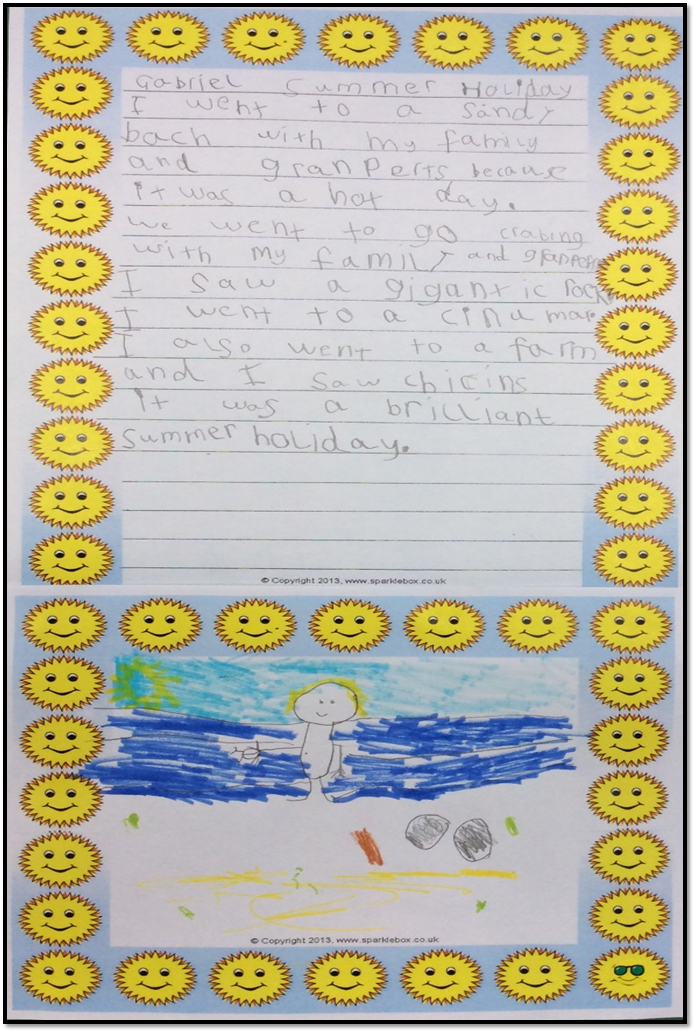 Gabriel Summer Holiday
I went to a sandy
bach with my family
and granperts because
it was a hot day.
we went to go crabing
with my family and granperts
I saw a gigantic rock
I went to a cinumar.
I also went to a farm
and I saw chicins
It was a brilliant
summer holiday.
© Copyright 2013, www.sparklebox.co.uk
© Copyright 2013, www.sparklebox.co.uk